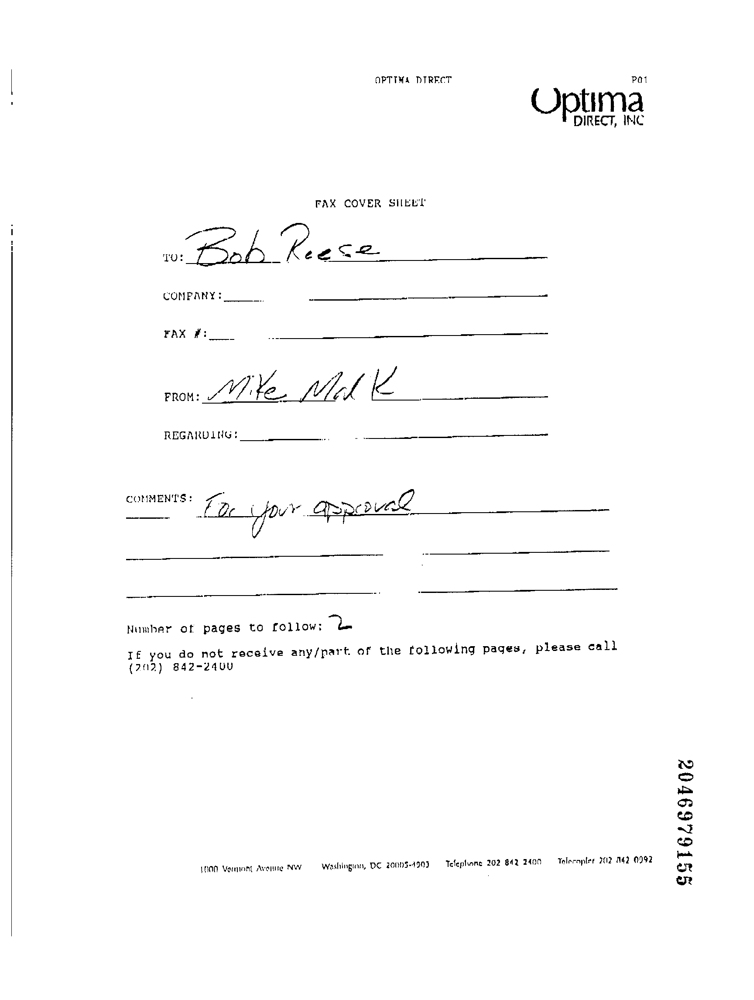 OPTIMA DIRECT P01
Optima
DIRECT, INC
FAX COVER SHEET
TO: Bob Reese
COMPANY:
FAX #:
FROM: Mike Malk
REGARDING:
COMMENTS: For your approval
Number of pages to follow: 2
If you do not receive any/part of the following pages, please call
(202) 842-2400
2046979155
1000 Vermont Avenue NW Washington, DC 20005-4903 Telephone 202 842 2400 Telecopier 202 842 0092